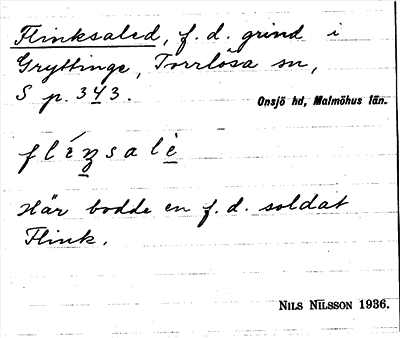 Flinksaled, f. d. grind i
Gryttinge, Torrlösa sn,
S p. 343.
Onsjö hd, Malmöhus län.
flíŋsalè
Här bodde en f. d. soldat
Flink.
NILS NILSSON 1936.